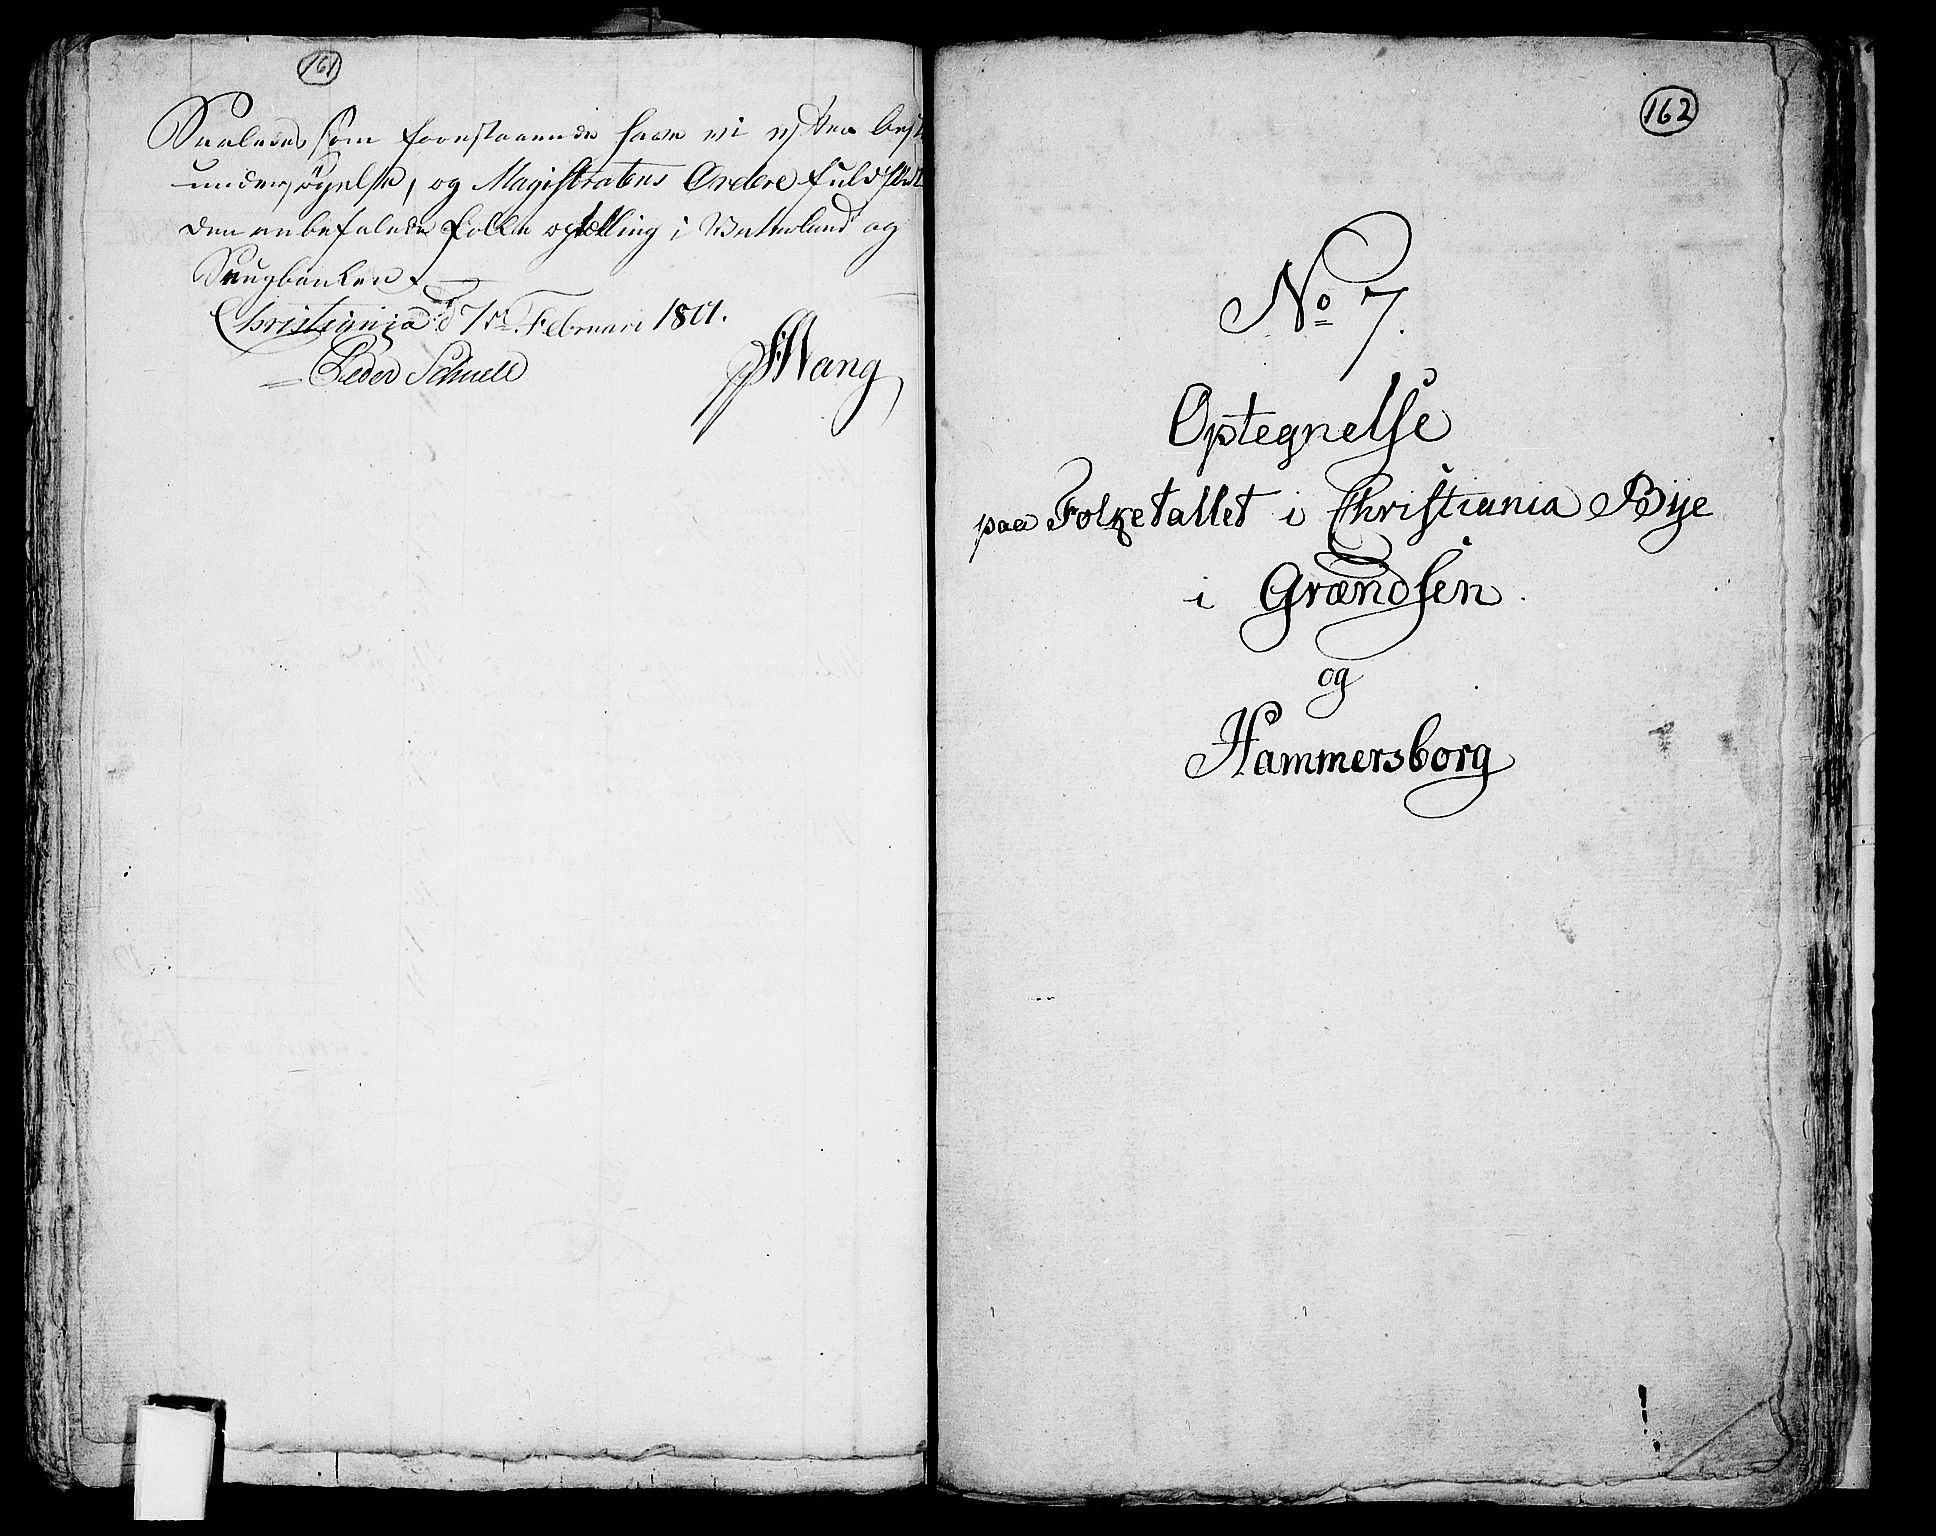 161
Saaledes som forestaaende have vi efter best
undersøgelse, og Magistratens Ordere fuldført
den anbefalede folke optælling i Vatterland og
Saugbanken.
Christiania d 7de Februari 1801.
Peder Schuell
Wang
162
No 7.
Optegnelse
paa Folketallet i Christiania Bye
i Grændsen.
og
Hammersborg